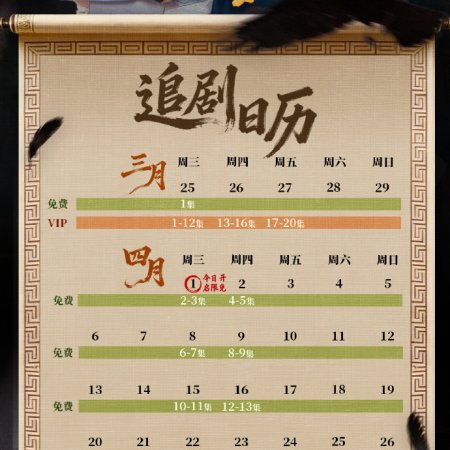 追剧日历
三月
周三 周四 周五 周六 周日
25 26 27 28 29
免费 1集
VIP 1-12集 13-16集 17-20集
四月
周三 周四 周五 周六 周日
1 今日开启限免 2 3 4 5
免费 2-3集 4-5集
6 7 8 9 10 11 12
免费 6-7集 8-9集
13 14 15 16 17 18 19
免费 10-11集 12-13集
20 21 22 23 24 25 26